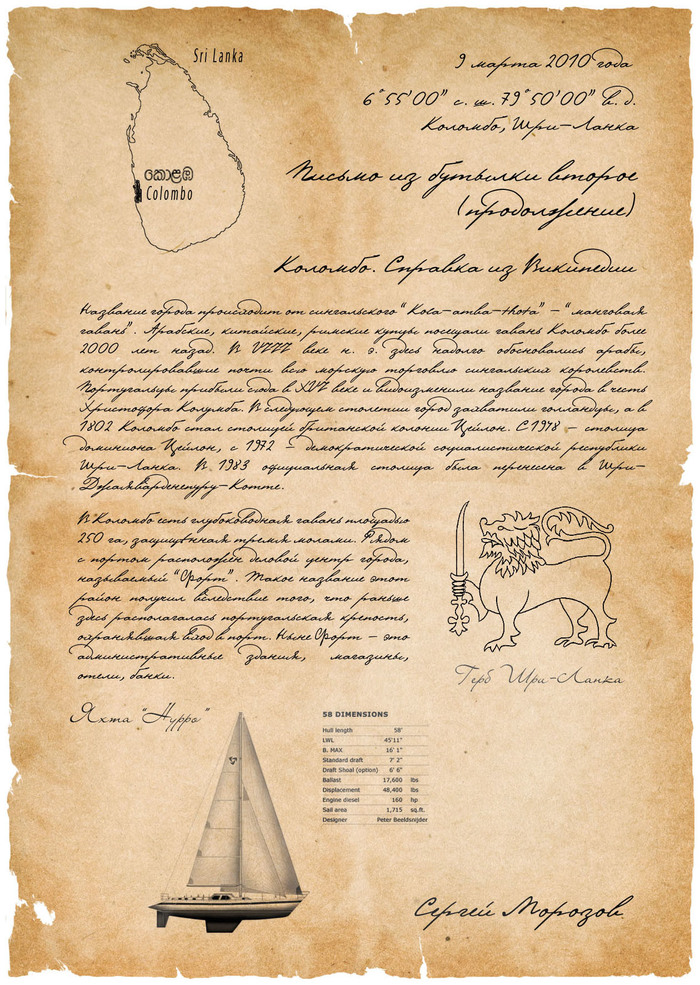 Sri Lanka
කොළඹ
Colombo
9 марта 2010 года
6°55'00" с. ш. 79°50'00" в. д.
Коломбо, Шри-Ланка
Письмо из бутылки второе
(продолжение)
Коломбо. Справка из Википедии
Название города происходит от сингальского "Kola-amba-thota" – "манговая
гавань". Арабские, китайские, римские купцы посещали гавань Коломбо более
2000 лет назад. В VIII веке н. э. здесь надолго обосновались арабы,
контролировавшие почти всю морскую торговлю сингальских королевств.
Португальцы прибыли сюда в XVI веке и видоизменили название города в честь
Христофора Колумба. В следующем столетии город захватили голландцы, а в
1802 Коломбо стал столицей британской колонии Цейлон. С 1948 – столица
доминиона Цейлон, с 1972 – демократической социалистической республики
Шри-Ланка. В 1983 официальная столица была перенесена в Шри-
Джаяварденепуру-Котте.
В Коломбо есть глубоководная гавань площадью
250 га, защищённая тремя молами. Рядом
с портом расположен деловой центр города,
называемый "Форт". Такое название этот
район получил вследствие того, что раньше
здесь располагалась португальская крепость,
охранявшая вход в порт. Ныне Форт – это
административные здания, магазины,
отели, банки.
Герб Шри-Ланка
Яхта "Нурро"
58 DIMENSIONS
Hull length 58'
LWL 45'11"
B. MAX 16' 1"
Standard draft 7' 2"
Draft Shoal (option) 6' 6"
Ballast 17,600 lbs
Displacement 48,400 lbs
Engine diesel 160 hp
Sail area 1,715 sq.ft.
Designer Peter Beeldsnijder
Сергей Морозов